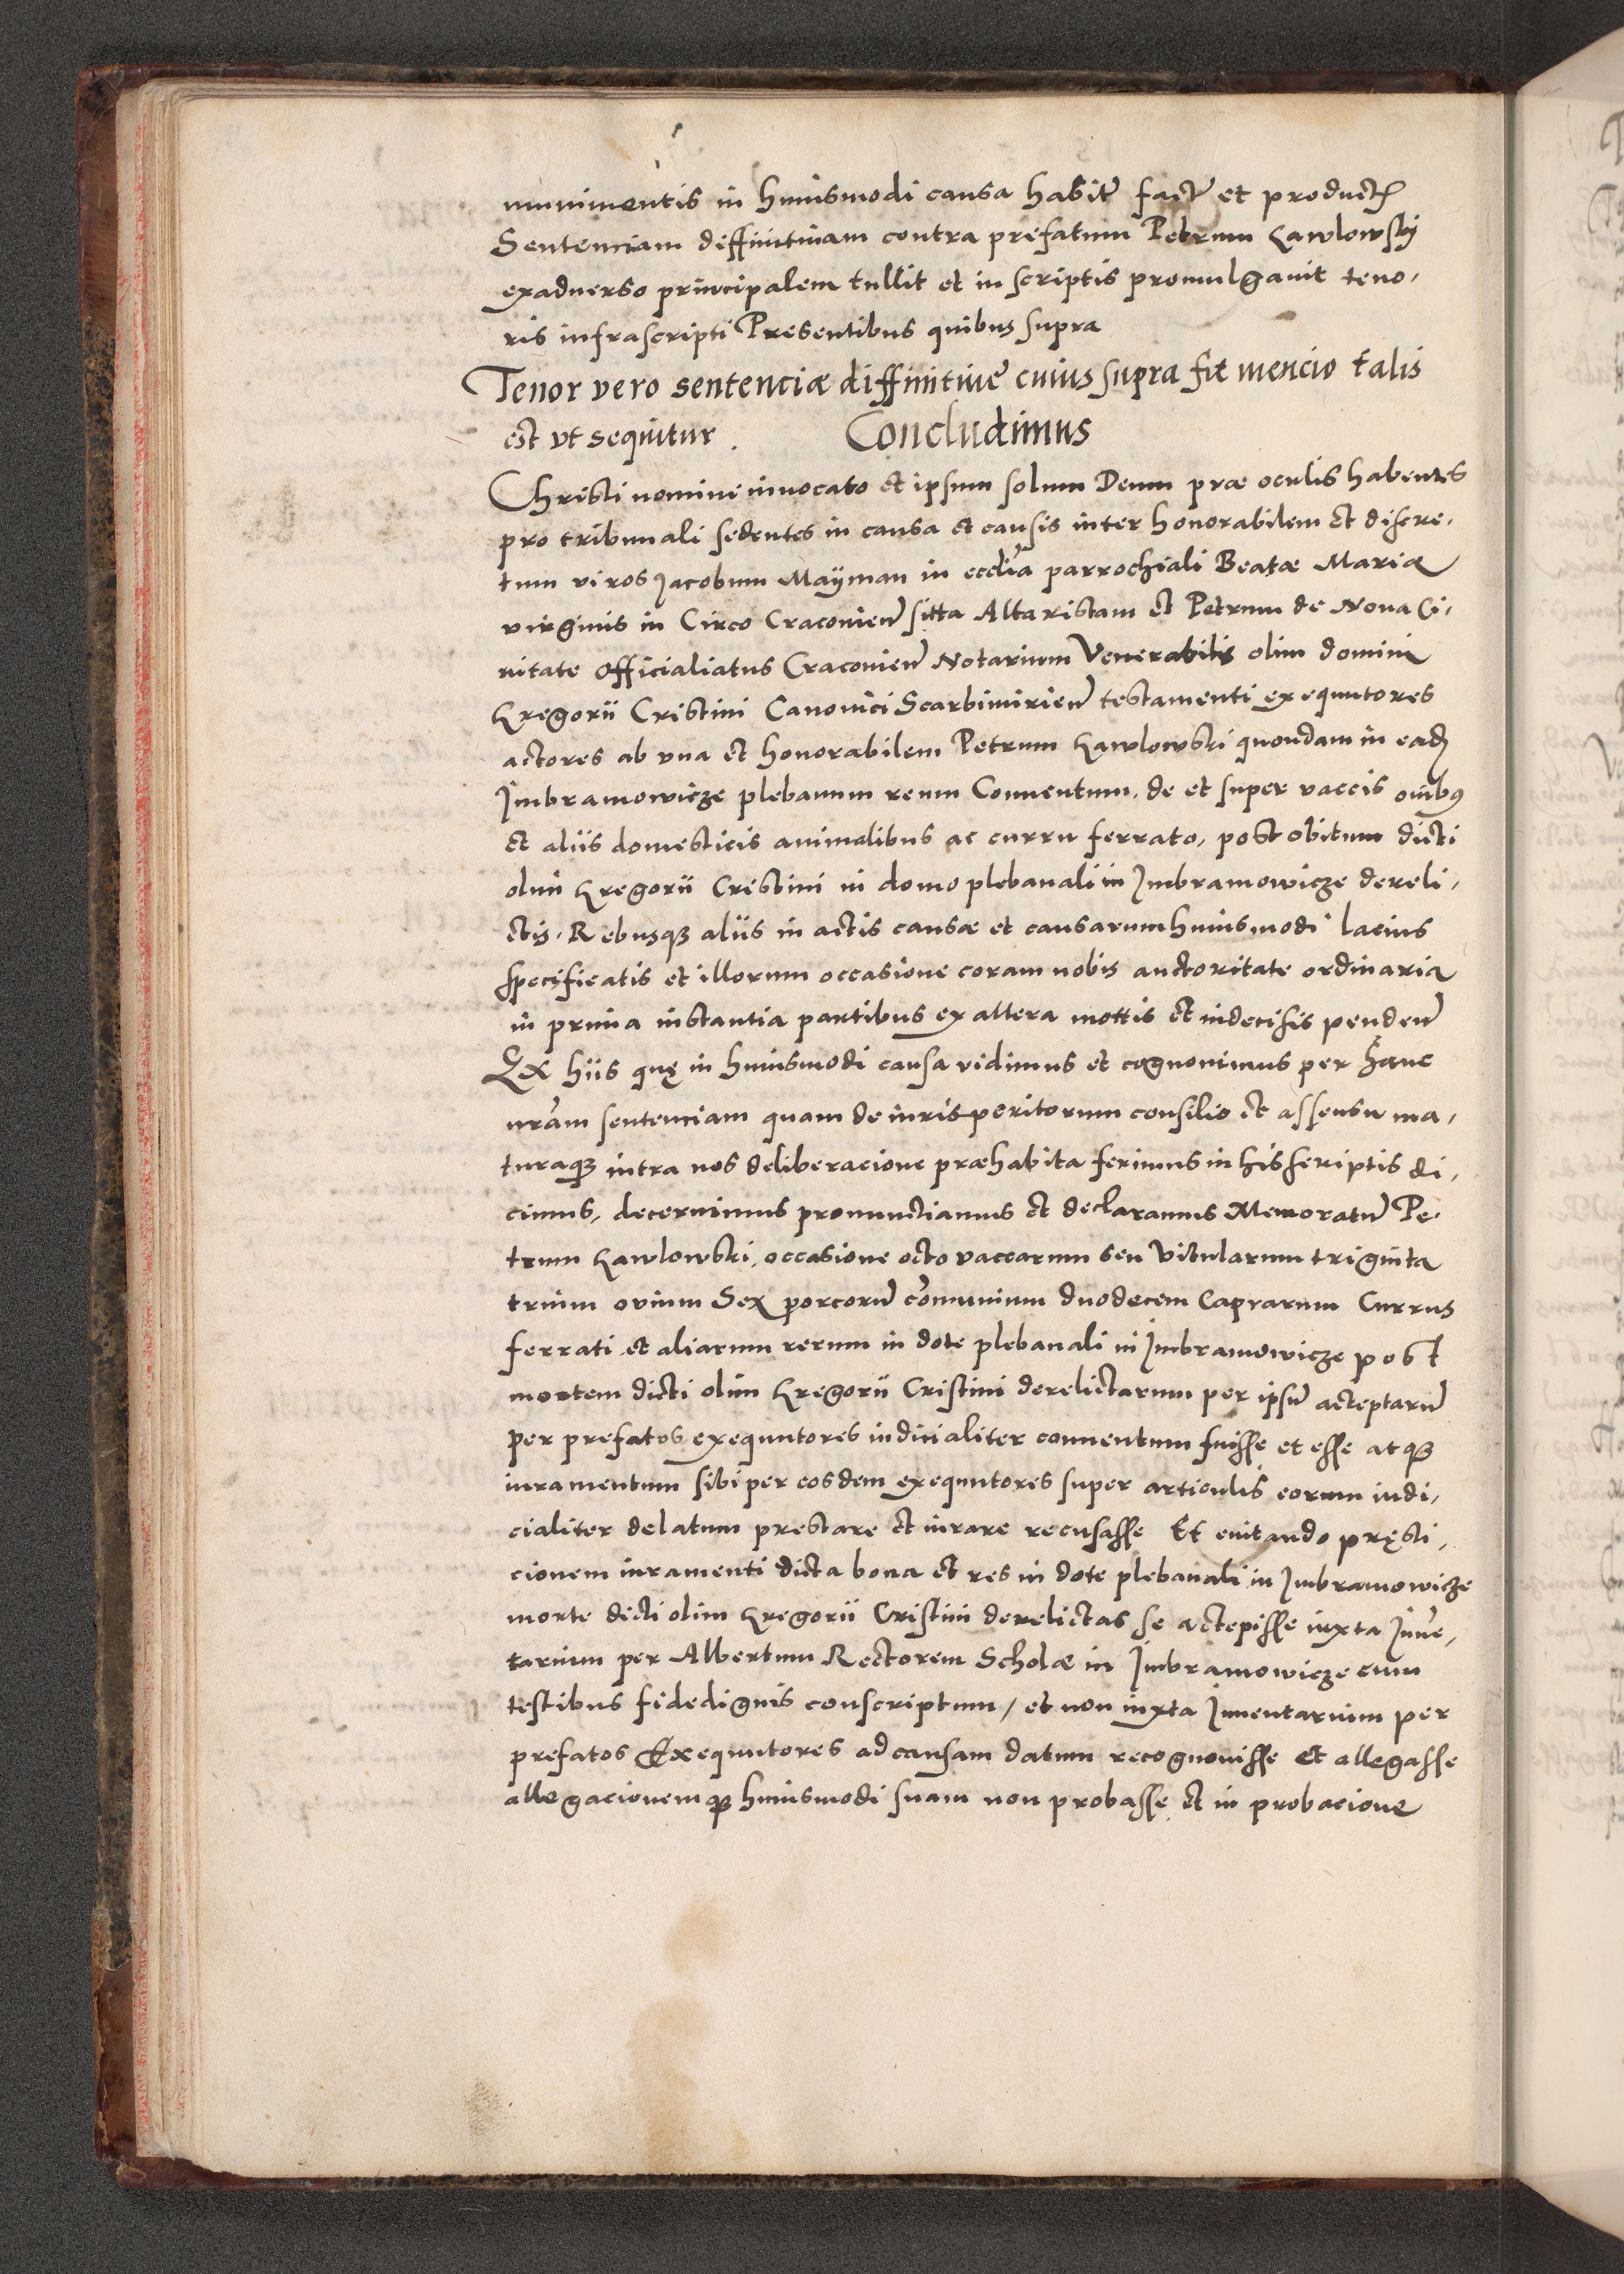 munimentis in huiusmodi causa habit͛ fact͛ et product͛
Sentenciam diffinitiuam contra prefatum Petrum Gawlowsky
exaduerso principalem tullit et in scriptis promulgauit teno,
ris infrascripti Presentibus quibus supra
Tenor vero sentenciæ diffinitiue͛ cuius supra fit mencio talis
est vt sequitur. Concludimus
Christi nomine inuocato et ipsum solum Deum præ oculis habentes
pro tribunali sedentes in causa et causis inter honorabilem et discre,
tum viros Jacobum Mayman in eccl͛ia parrochiali Beatæ Maria
virginis in Circo Cracouien͛ sitta Altaristam et Petrum de Noua Ci,
uitate Officialiatus Cracouien͛ Notarium Venerabilis olim domini
Gregorii Cristini Canonici Scarbimirien͛ testamenti exequutores
actores ab vna et honorabilem Petrum Gawlowski quondam in ead͛
Imbramowicze plebanum reum Conuentum, de et super vaccis ouib9
et aliis domesticis animalibus ac curru ferrato, post obitum dicti
olim Gregorii Cristini in domo plebanali in Imbramowicze dereli,
ctis, Rebusqȝ aliis in actis causæ et causarum huiusmodi lacius
specificatis et illorum occasione coram nobis auctoritate ordinaria
in prima instantia partibus ex altera mottis et indecisis penden͛
Ex hiis quę in huiusmodi causa vidimus et cognouimus per hanc
nr͛am sentenciam quam de iurisperitorum consilio et assensu ma,
turaqȝ intra nos deliberacione præhabita ferimus in his scriptis di,
cimus, decernimus pronunctiamus et declaramus Memoratu͛ Pe,
trum Gawlowski, occasione octo vaccarum seu Vitularum triginta
trium ouium Sex porcoru͛ co͛munium duodecem Caprarum Currus
ferrati et aliarum rerum in dote plebanali in Imbramowicze post
mortem dicti olim Gregorii Cristini derelictarum per ipsu͛ acteptaru͛
per prefatos exequutores iudicialiter conuentum fuisse et esse atqȝ
iuramentum sibi per eosdem exequutores super articulis eorum iudi,
cialiter delatum prestare et iurare recusasse Et euitando pręsti,
cionem iuramenti dicta bona et res in dote plebanali in Imbramowicze
morte dicti olim Gregorii Cristini derelictas se actepisse iuxta Inue͛,
tarium per Albertum Rectorem Scholæ in Imbramowicze cum
testibus fidedignis conscriptum, et non iuxta Inuentarium per
prefatos Exequutores ad causam datum recognouisse et allegasse
allegacionemqȝ huiusmodi suam non probasse et in probacione